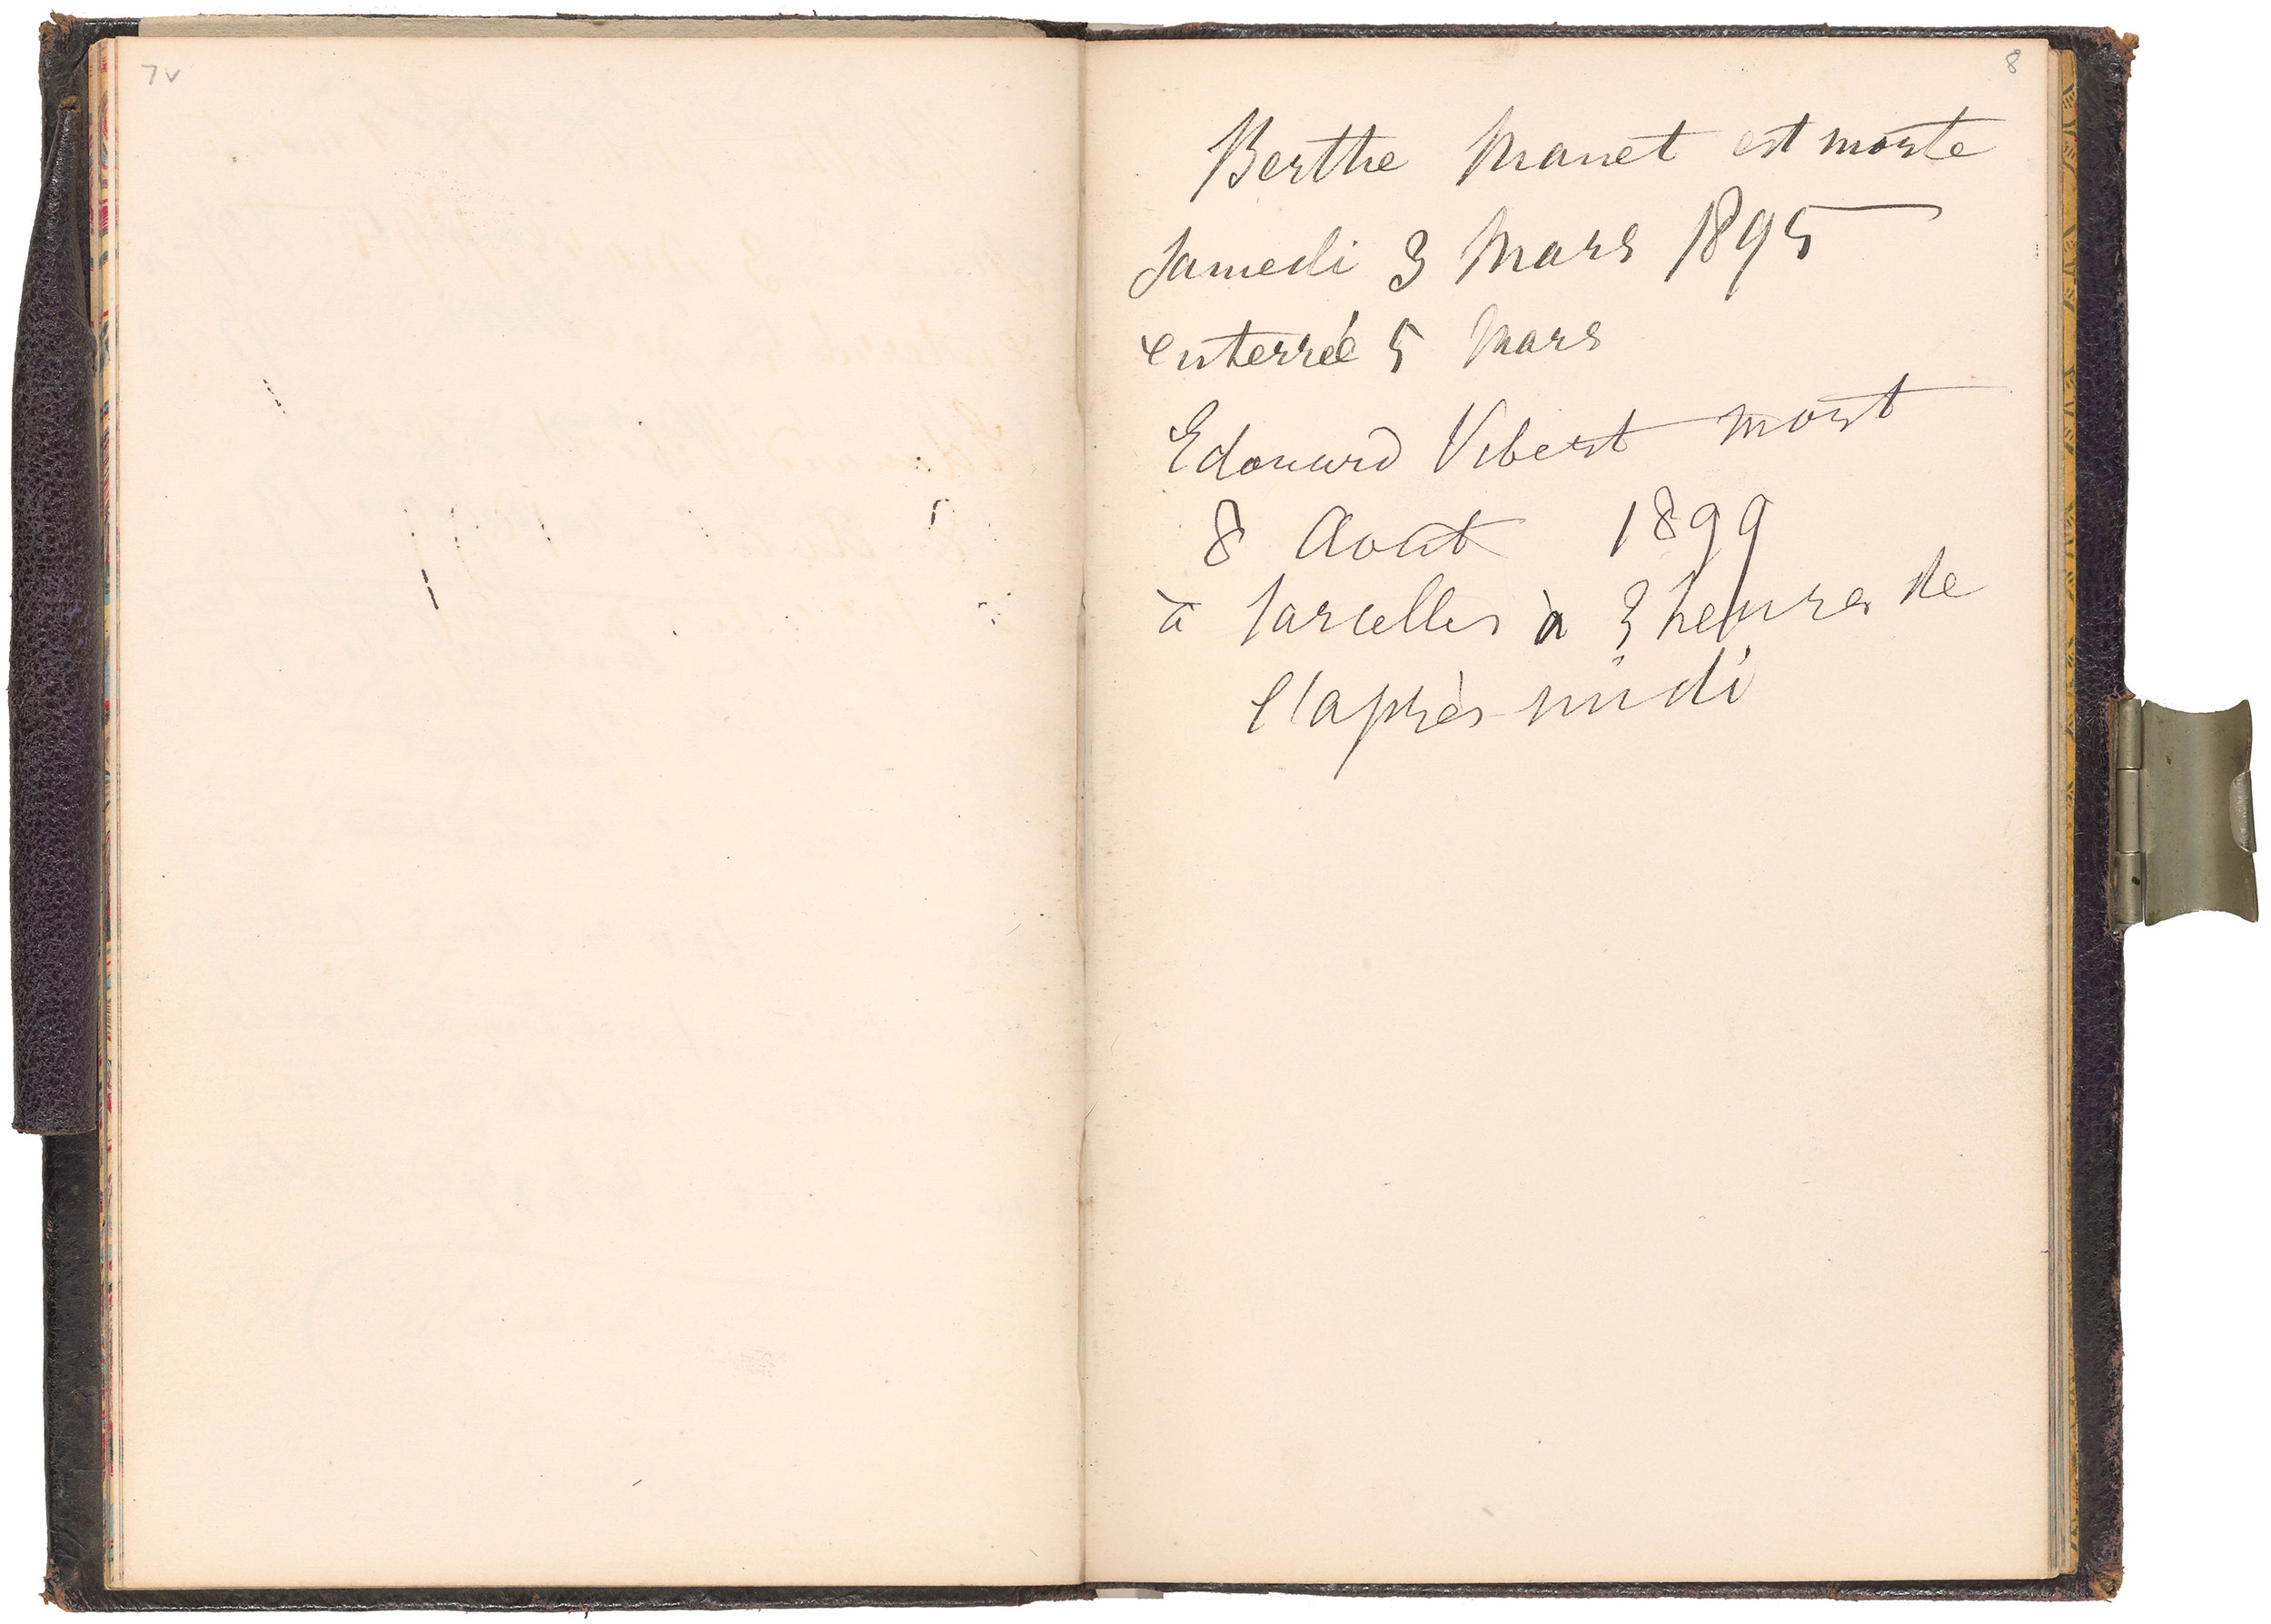 7v
8
Berthe Manet est morte
Samedi 3 Mars 1895
enterrée 5 Mars
Edouard Vibert mort
8 Août 1899
à Sarcelles à 3 heures de
l'après-midi